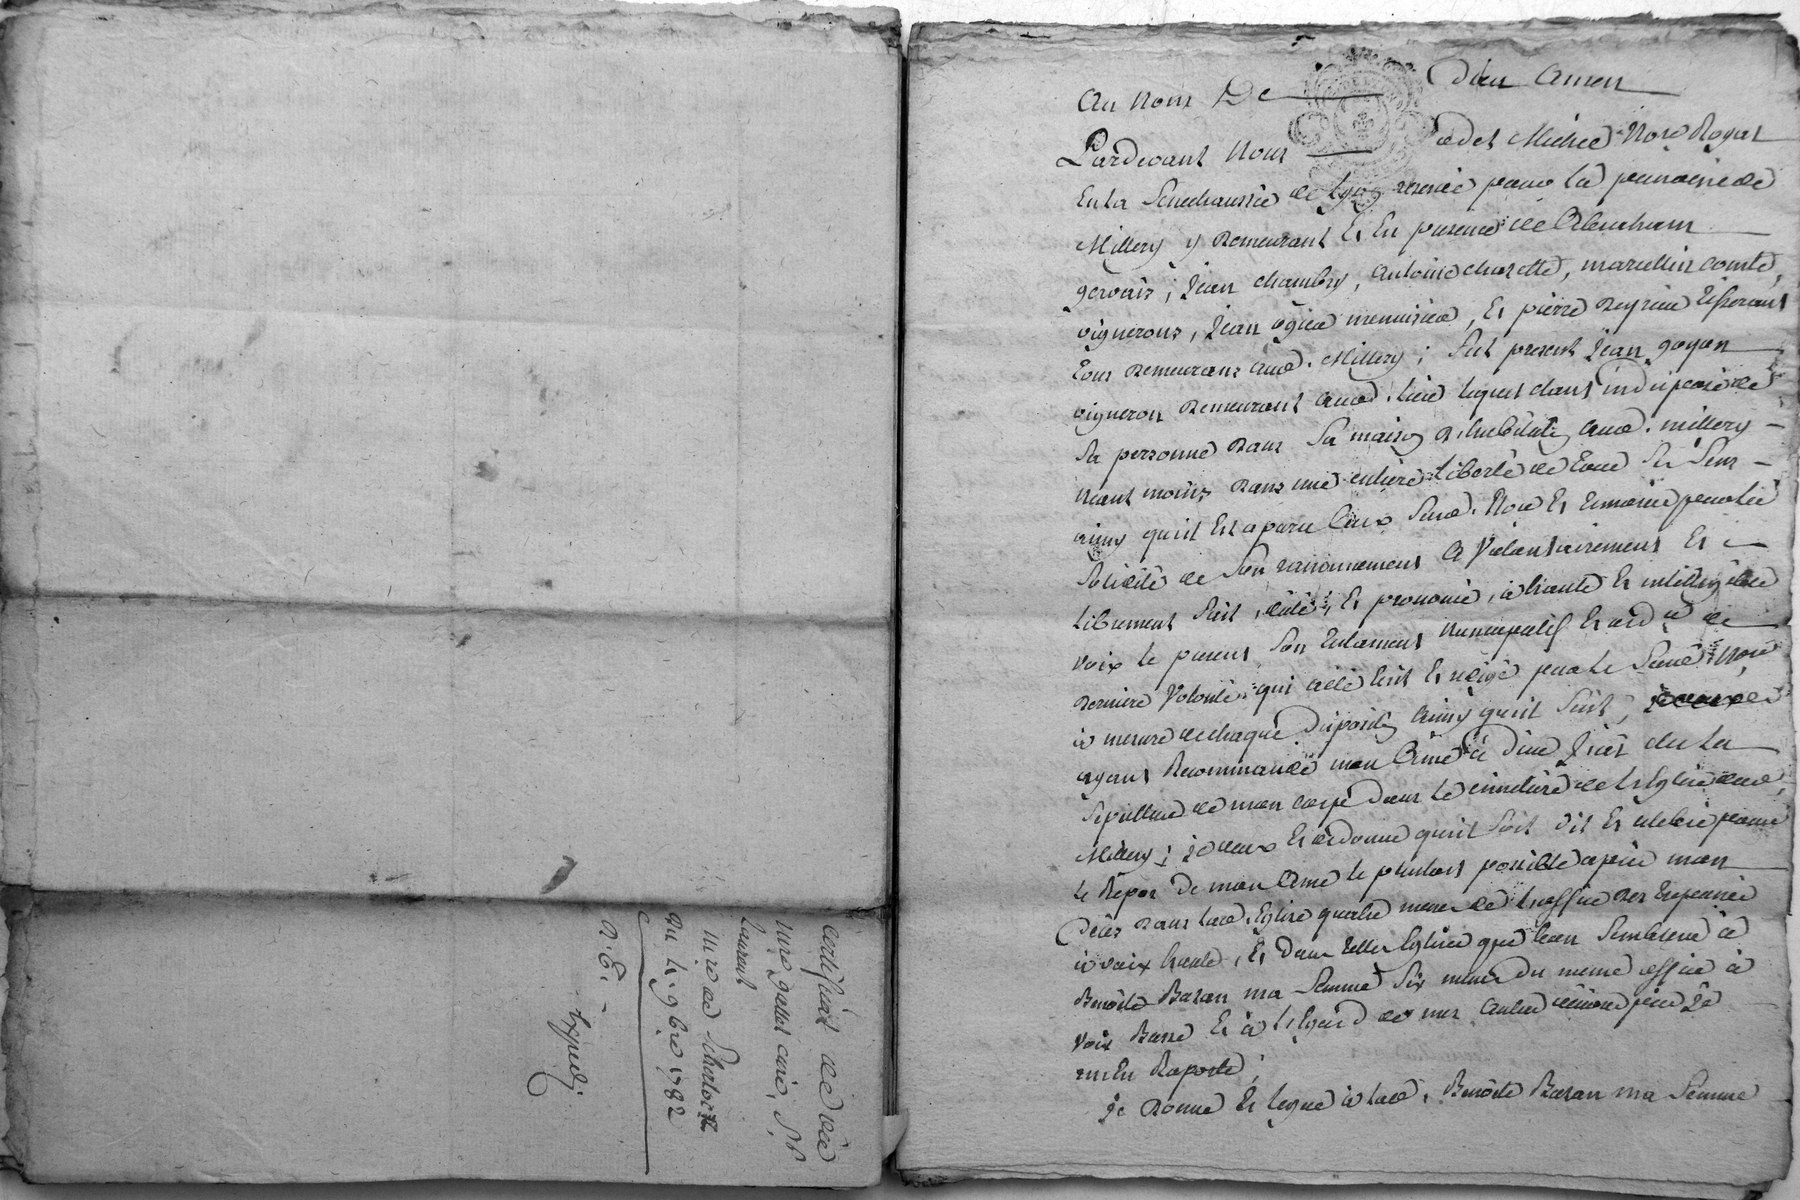 certifficat de vie
mre gallet curé, St
Laurent
mre de
du 4. 9bre 1782
D. E. -
Expedi.
Au Nom De Dieu Amen
Pardevant Nous Michel Nore Royal
En la Senechaussée de Lyon reservé pour la paroisse de
Millery y Demeurant Et En presence de Abraham
gervais ; Jean chambry, Antoine charette, marcellin comte,
vignerons, Jean menuisier, Et pierre
tous Demeurans aud. Millery ; fut present Jean goyon
vigneron Demeurant aud. Lieu lequel étant indisposé de
Sa personne Dans Sa maison D'habitaon aud. millery
neant moins Dans une entiere Liberté de tous Ses Sens
ainsy quil Est aparu aux Sd. Nore Et temoins par la
Solidité de Son raisonnement A Volontairement Et
Librement fait, dicté, Et prononcé, à haute Et intelligible
voix le present Son testament Nuncupatif Et ord. de
Derniere Volonté, qui a été Ecrit Et redigé par le Susd. Nore
à mesure de chaque Disposion ainsy quil Suit,
ayant Recommandé mon Ame à Dieu Je élu la
Sepulture de mon corps dans le cimetiere de l'Eglise dud.
Millery ; Je veux Et ordonne quil Soit Dit Et celebré pour
le Repos De mon Ame le plutost possible après mon
Décès Dans lad. Eglise quatre messes de l'office Des trepassés
à voix haute, Et Dans telle Eglise que bon Semblera à
Benoite Baran ma femme Six messes du meme office à
voix Basse Et à l'Egard de mes autres œuvres pies Je
m'en Raporte ;
Je Donne Et legue à lad. Benoite Baran ma femme